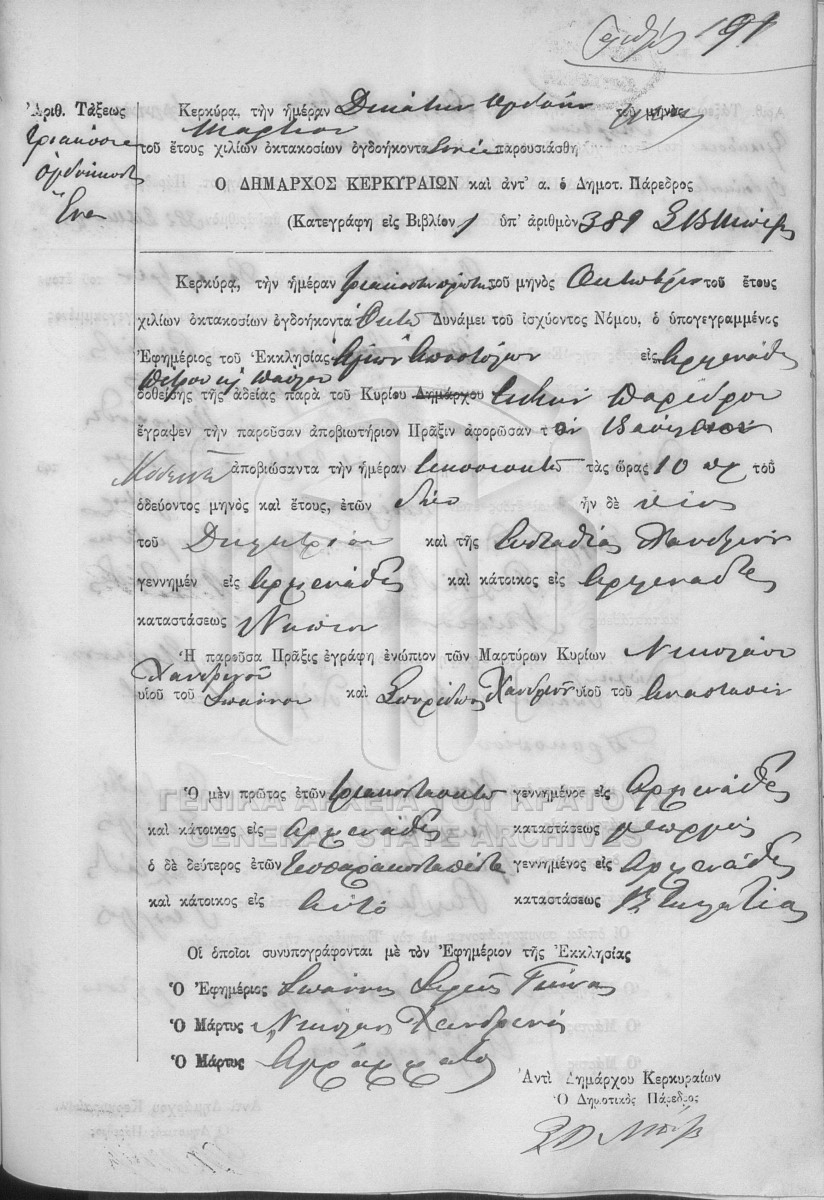 Ἀριθμὸς 191
Ἀριθ. Τάξεως
Κερκύρα, τὴν ἡμέραν Δεκάτην ὀγδόην τοῦ μηνὸς
Μαρτίου
τοῦ ἔτους χιλίων ὀκτακοσίων ὀγδοήκοντα ἐννέα παρουσιάσθη
τριακόσια
ὀγδοήκοντα
ἕνα
Ὁ ΔΗΜΑΡΧΟΣ ΚΕΡΚΥΡΑΙΩΝ καὶ ἀντ' α. ὁ Δημοτ. Πάρεδρος
(Κατεγράφη εἰς Βιβλίον 1 ὑπ' ἀριθμὸν 381
Κερκύρα, τὴν ἡμέραν τριακοστὴν πρώτην τοῦ μηνὸς Ὀκτωβρίου τοῦ ἔτους
χιλίων ὀκτακοσίων ὀγδοήκοντα ὀκτὼ Δυνάμει τοῦ ἰσχύοντος Νόμου, ὁ ὑπογεγραμμένος
Ἐφημέριος τοῦ Ἐκκλησίας Ἁγίων Ἀποστόλων εἰς Ἀρμενάδες
Πέτρου κ Παύλου
δοθείσης τῆς ἀδείας παρὰ τοῦ Κυρίου Δημάρχου εἰδικοῦ Παρέδρου
ἔγραψεν τὴν παροῦσαν ἀποβιωτήριον Πρᾶξιν ἀφορῶσαν τὸν Βασίλειον
ἀποβιώσαντα τὴν ἡμέραν εἰκοσιοκτὼ τὰς ὥρας 10 πμ τοῦ
ὁδεύοντος μηνὸς καὶ ἔτους, ἐτῶν δύο ἦν δὲ υἱὸς
τοῦ Δημητρίου καὶ τῆς Εὐσταθίας
γεννημέν εἰς Ἀρμενάδες καὶ κάτοικος εἰς Ἀρμενάδες
καταστάσεως Νήπιον
Ἡ παροῦσα Πρᾶξις ἐγράφη ἐνώπιον τῶν Μαρτύρων Κυρίων Νικολάου
Χανδρινοῦ
υἱοῦ τοῦ Ἰωάννου καὶ Σπυρίδωνος Χανδρινοῦ υἱοῦ τοῦ Ἀναστασίου
Ὁ μὲν πρῶτος ἐτῶν τριακονταοκτὼ γεννημένος εἰς Ἀρμενάδες
ΓΕΝΙΚΑ ΑΡΧΕΙΑ ΤΟΥ ΚΡΑΤΟΥΣ
καὶ κάτοικος εἰς Ἀρμενάδες καταστάσεως γεωργὸς
GENERAL STATE ARCHIVES
ὁ δὲ δεύτερος ἐτῶν τεσσαρακονταπέντε γεννημένος εἰς Ἀρμενάδες
καὶ κάτοικος εἰς αὐτὸ καταστάσεως κτηματίας
Οἱ ὁποῖοι συνυπογράφονται μὲ τὸν Ἐφημέριον τῆς Ἐκκλησίας
Ὁ Ἐφημέριος Ἰωάννης Ἱερεὺς Γκίνας
Ὁ Μάρτυς Νικόλαος Χανδρινός
Ὁ Μάρτυς Ἀγράμματος
Ἀντὶ Δημάρχου Κερκυραίων
Ὁ Δημοτικὸς Πάρεδρος